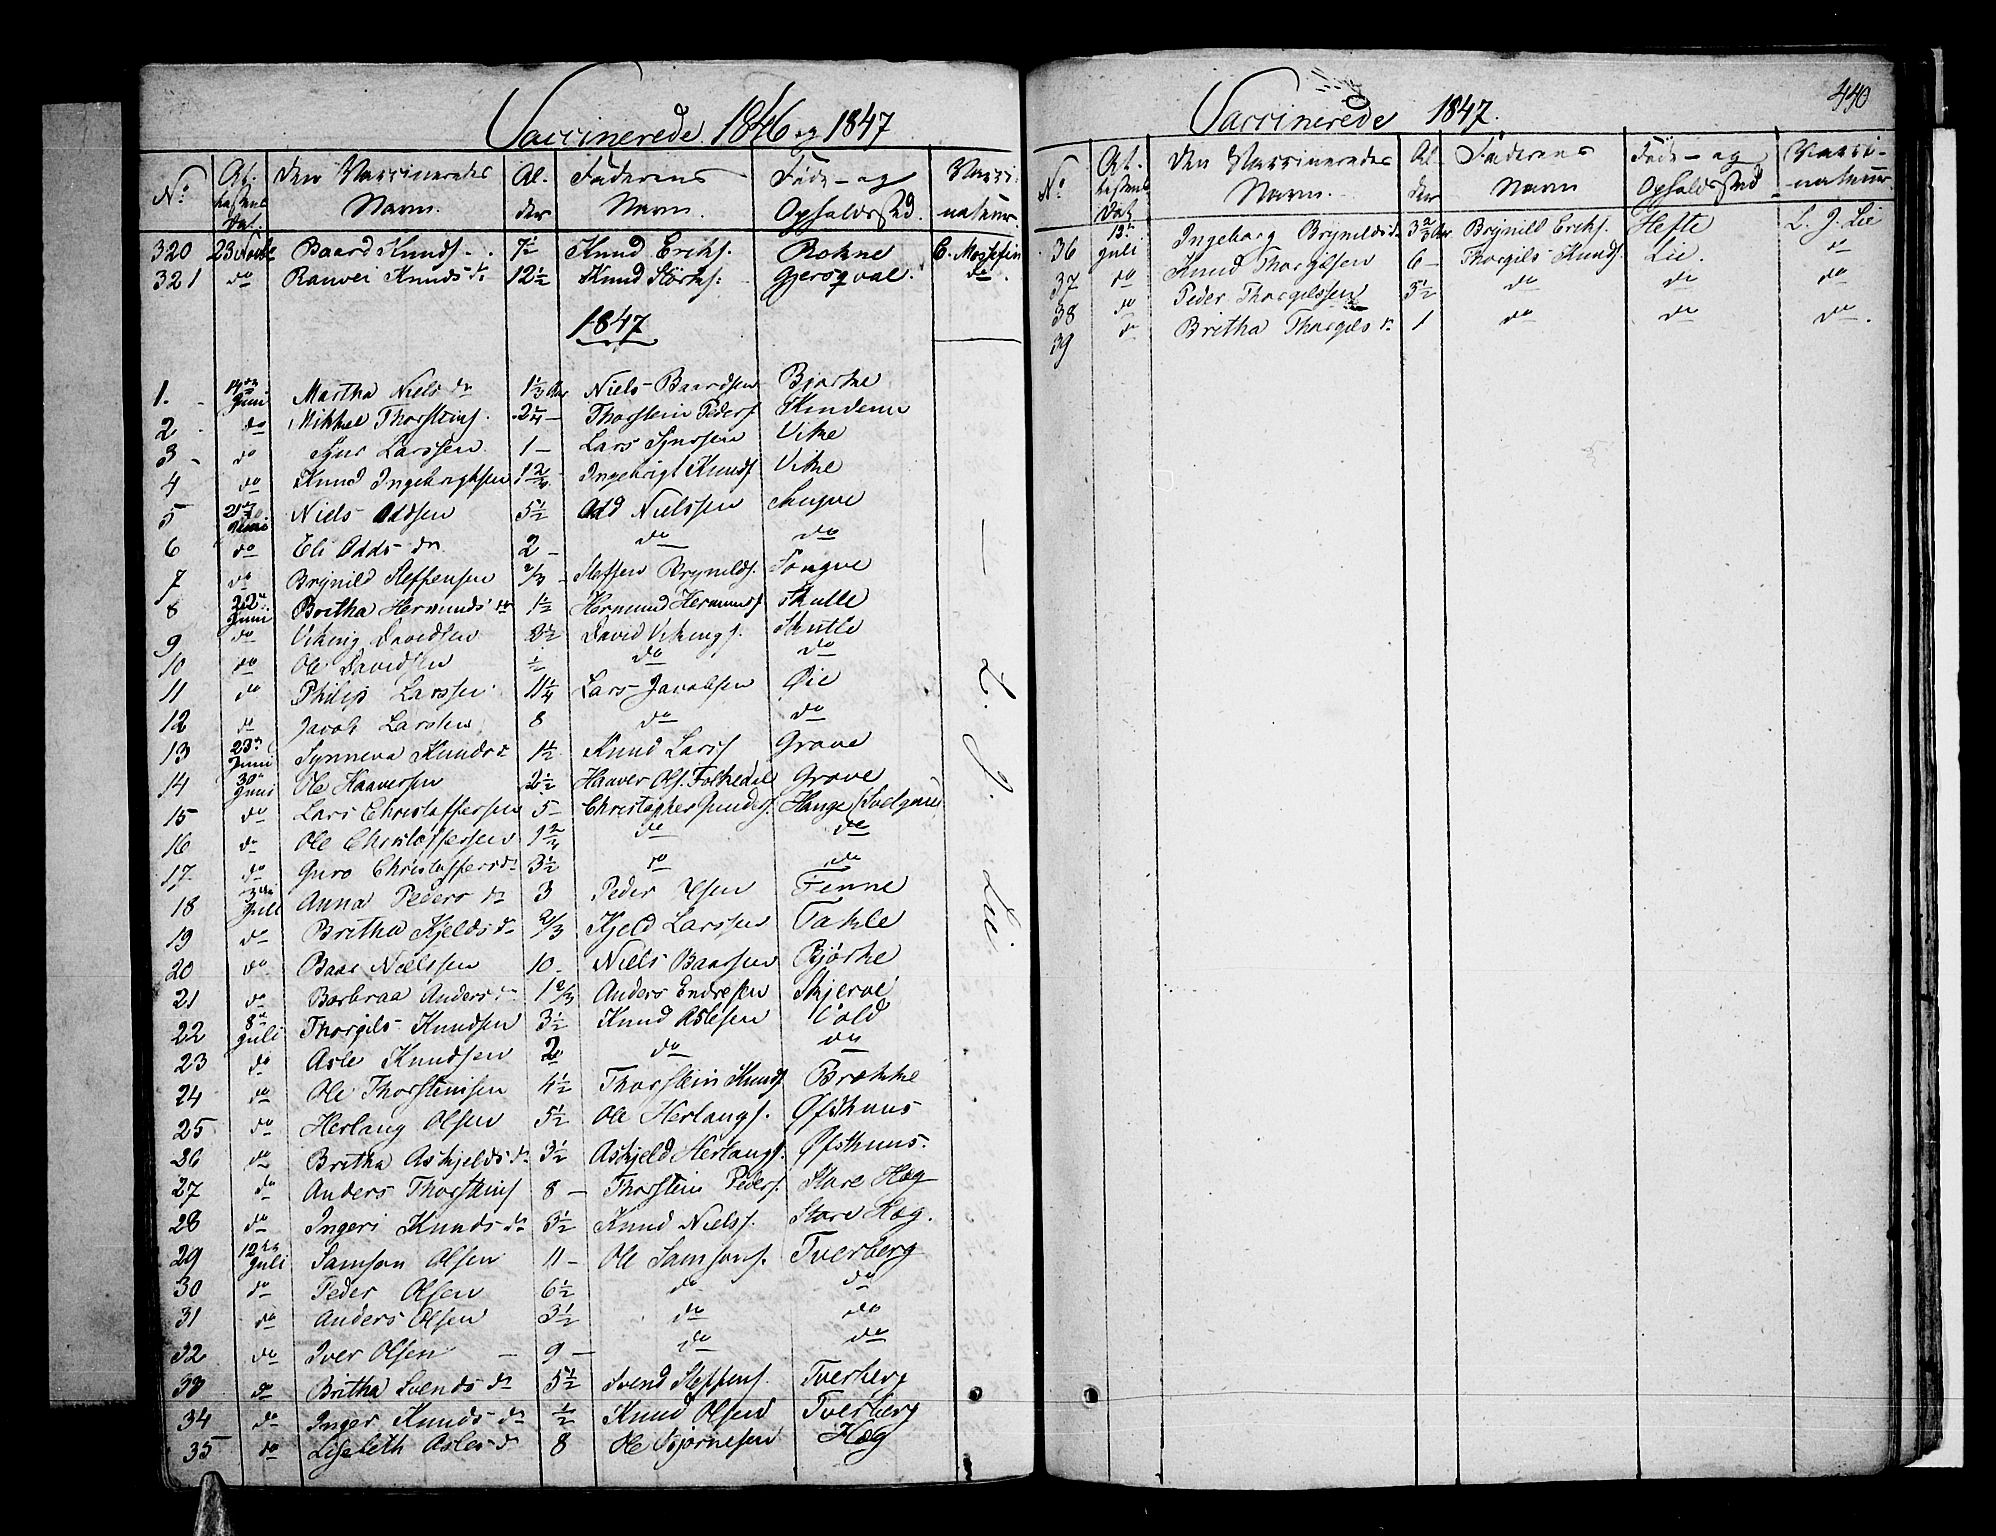 Vaccinerede 1846 og 1847
No At-testens Dat. Den Vaccineredes Navn. Al-der Faderens Navn. Føde- og Opholdssted. Vacci-nateur
320 23 Baard Knuds. 7½ Knud Eriks. Rokne
321 do Ranvei Knudsdr 12½ Knud Størks. Gjersqval. do
1847
1. 14de Juni Martha Nielsdr 1⅓ Aar Niels Baardsen Bjørke
2 do Mikkel Thorsteins. 2¼ Thorstein Peders.
3 do Sjur Larssen 1 - Lars Sjursen Vike
4 do Knud Ingebrigtsen Ingebrigt Knuds. Vike
5 Juni Niels Oddsen 5½ Odd Nielssen
6 do Eli Oddsdr 2 - do do
7 do Brynild Steffensen 2/3 - Steffen Brynilds.
8 22de Juni Britha Hermundsdr 1½ Hermund Hermunds. Skutle
9 do Viking Davidsen 2½ David Vikings. Skutle
10 do Ole Davidsen ½ do do
11 do Philip Larssen 11¼ Lars Jacobsen Øie
12 do Jacob Larssen 8 do do
13 23de Juni Synneva Knudsdr 1½ Knud Lars. Grove
14 30te Juni Ole Haaversen 2½ Haaver Ols. Folkedal Grove
15 do Lars Christoffersen 5 - Christopher Hauge
16 do Ole Christoffersen do do
17 do Guro Christoffersdr 3½ do do
18 3die Juli Anna Pedersdr 3 Peder Finne
19 do Britha Kjeldsdr 2/3 Kjeld Larssen Takle
20 do Baar Nielssen 10 - Niels Baarsen Bjørke
21 do Barbraa Andersdr 1 2/3 Anders Endresen Skjerve
22 8de Juli Thorgils Knudsen 3½ Knud Aslesen
23 do Asle Knudsen 2 do do
24 do Ole Thorsteinsen 4½ Thorstein Knuds. Brække
25 do Herlaug Olsen 5½ Ole Herlaugs. Øfsthuus
26 do Britha Askjeldsdr 3½ Askjeld Herlaugs. Øfsthuus.
27 do Anders Thorsteins 8 - Thorstein Peders. Store Hæg
28 do Ingeri Knudsdr 3½ Knud Niels. Store Hæg.
29 12te Juli Samson Olsen 11 - Ole Samsons. Tverberg
30 do Peder Olsen 6½ do do
31 do Anders Olsen 3½ do do
32 do Iver Olsen - 9 - do do
33 do Britha Svendsdr 5½ Svend Steffens. Tverberg
34 do Inger Knudsdr ½ Knud Olsen Tverberg
35 do Lisbeth Aslesdr 8 Ole Bjørnesen Hæg
L. J. Lie
440
Vaccinerede 1847.
No At-testens Dat Den Vaccineredes Navn. Al-der Faderens Navn Føde- og Opholdssted Vacci-nateur
36 13de Juli Ingeborg Brynildsdr 3 2/3 Aar Brynild Eriks. Hefte L. J. Lie
37 do Knud Thorgilsen 6 - Thorgils Knuds. Lie. do
38 do Peder Thorgilssen 3½ do do do
39 do Britha Thorgilsdr 1 do do do.